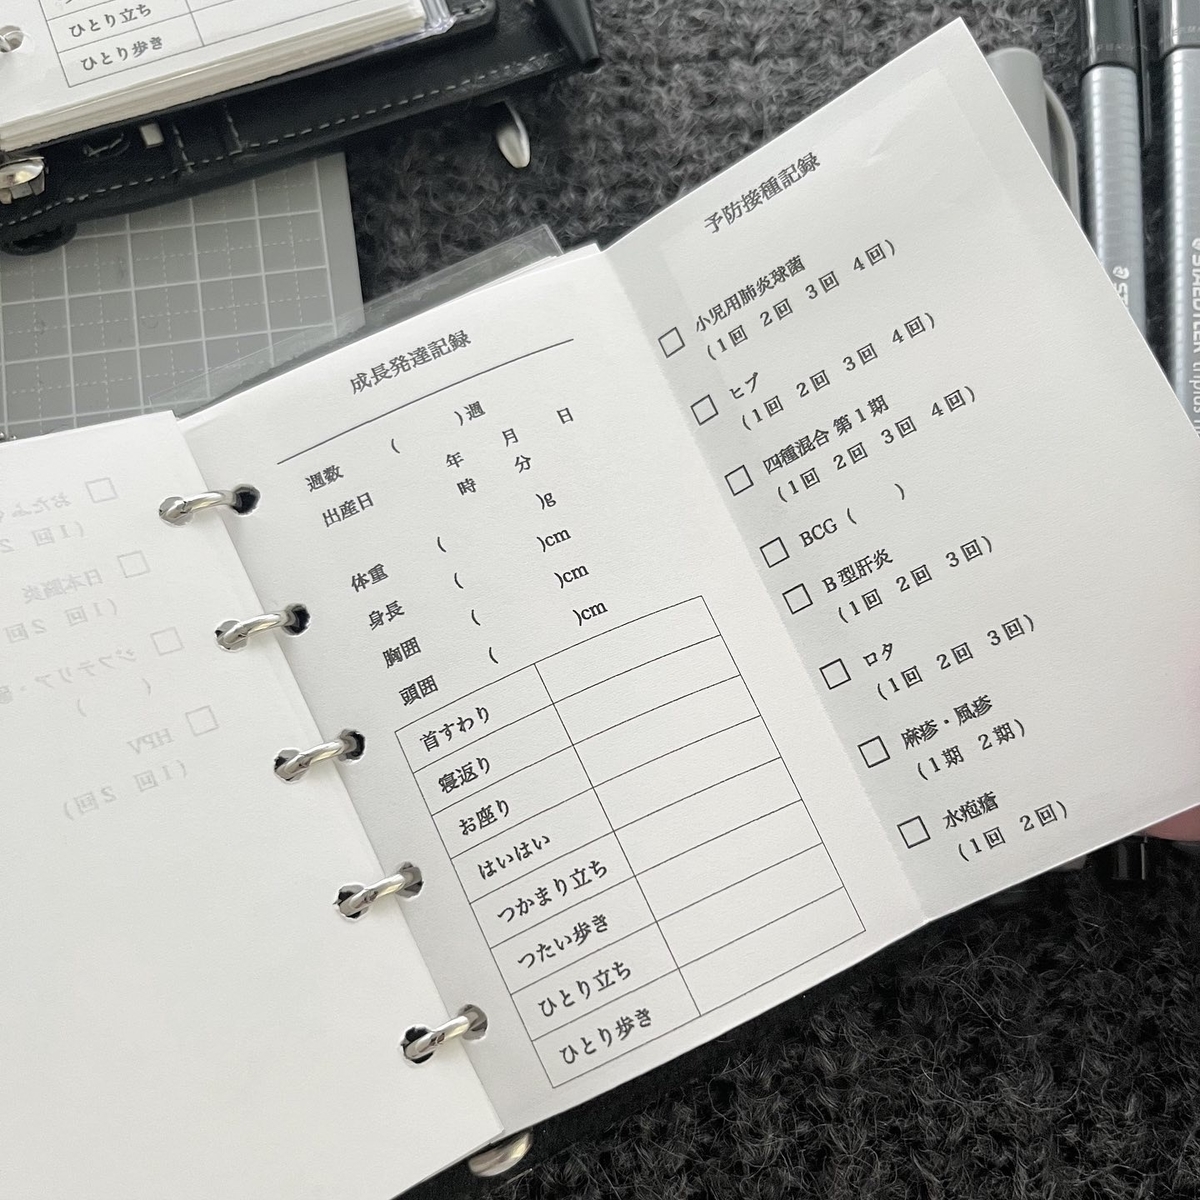 ひとり立ち
ひとり歩き
成長発達記録
週数 ( )週
出産日 年 月 日
時 分
体重 ( )g
身長 ( )cm
胸囲 ( )cm
頭囲 ( )cm
首すわり
寝返り
お座り
はいはい
つかまり立ち
つたい歩き
ひとり立ち
ひとり歩き
予防接種記録
□ 小児用肺炎球菌
(1回 2回 3回 4回)
□ ヒブ
(1回 2回 3回 4回)
□ 四種混合 第1期
(1回 2回 3回 4回)
□ BCG ( )
□ B型肝炎
(1回 2回 3回)
□ ロタ
(1回 2回 3回)
□ 麻疹・風疹
(1期 2期)
□ 水疱瘡
(1回 2回)
□ 日本脳炎
(1回 2回
□ ジフテリア・
( )
□ HPV
(1回 2回)
STAEDTLER